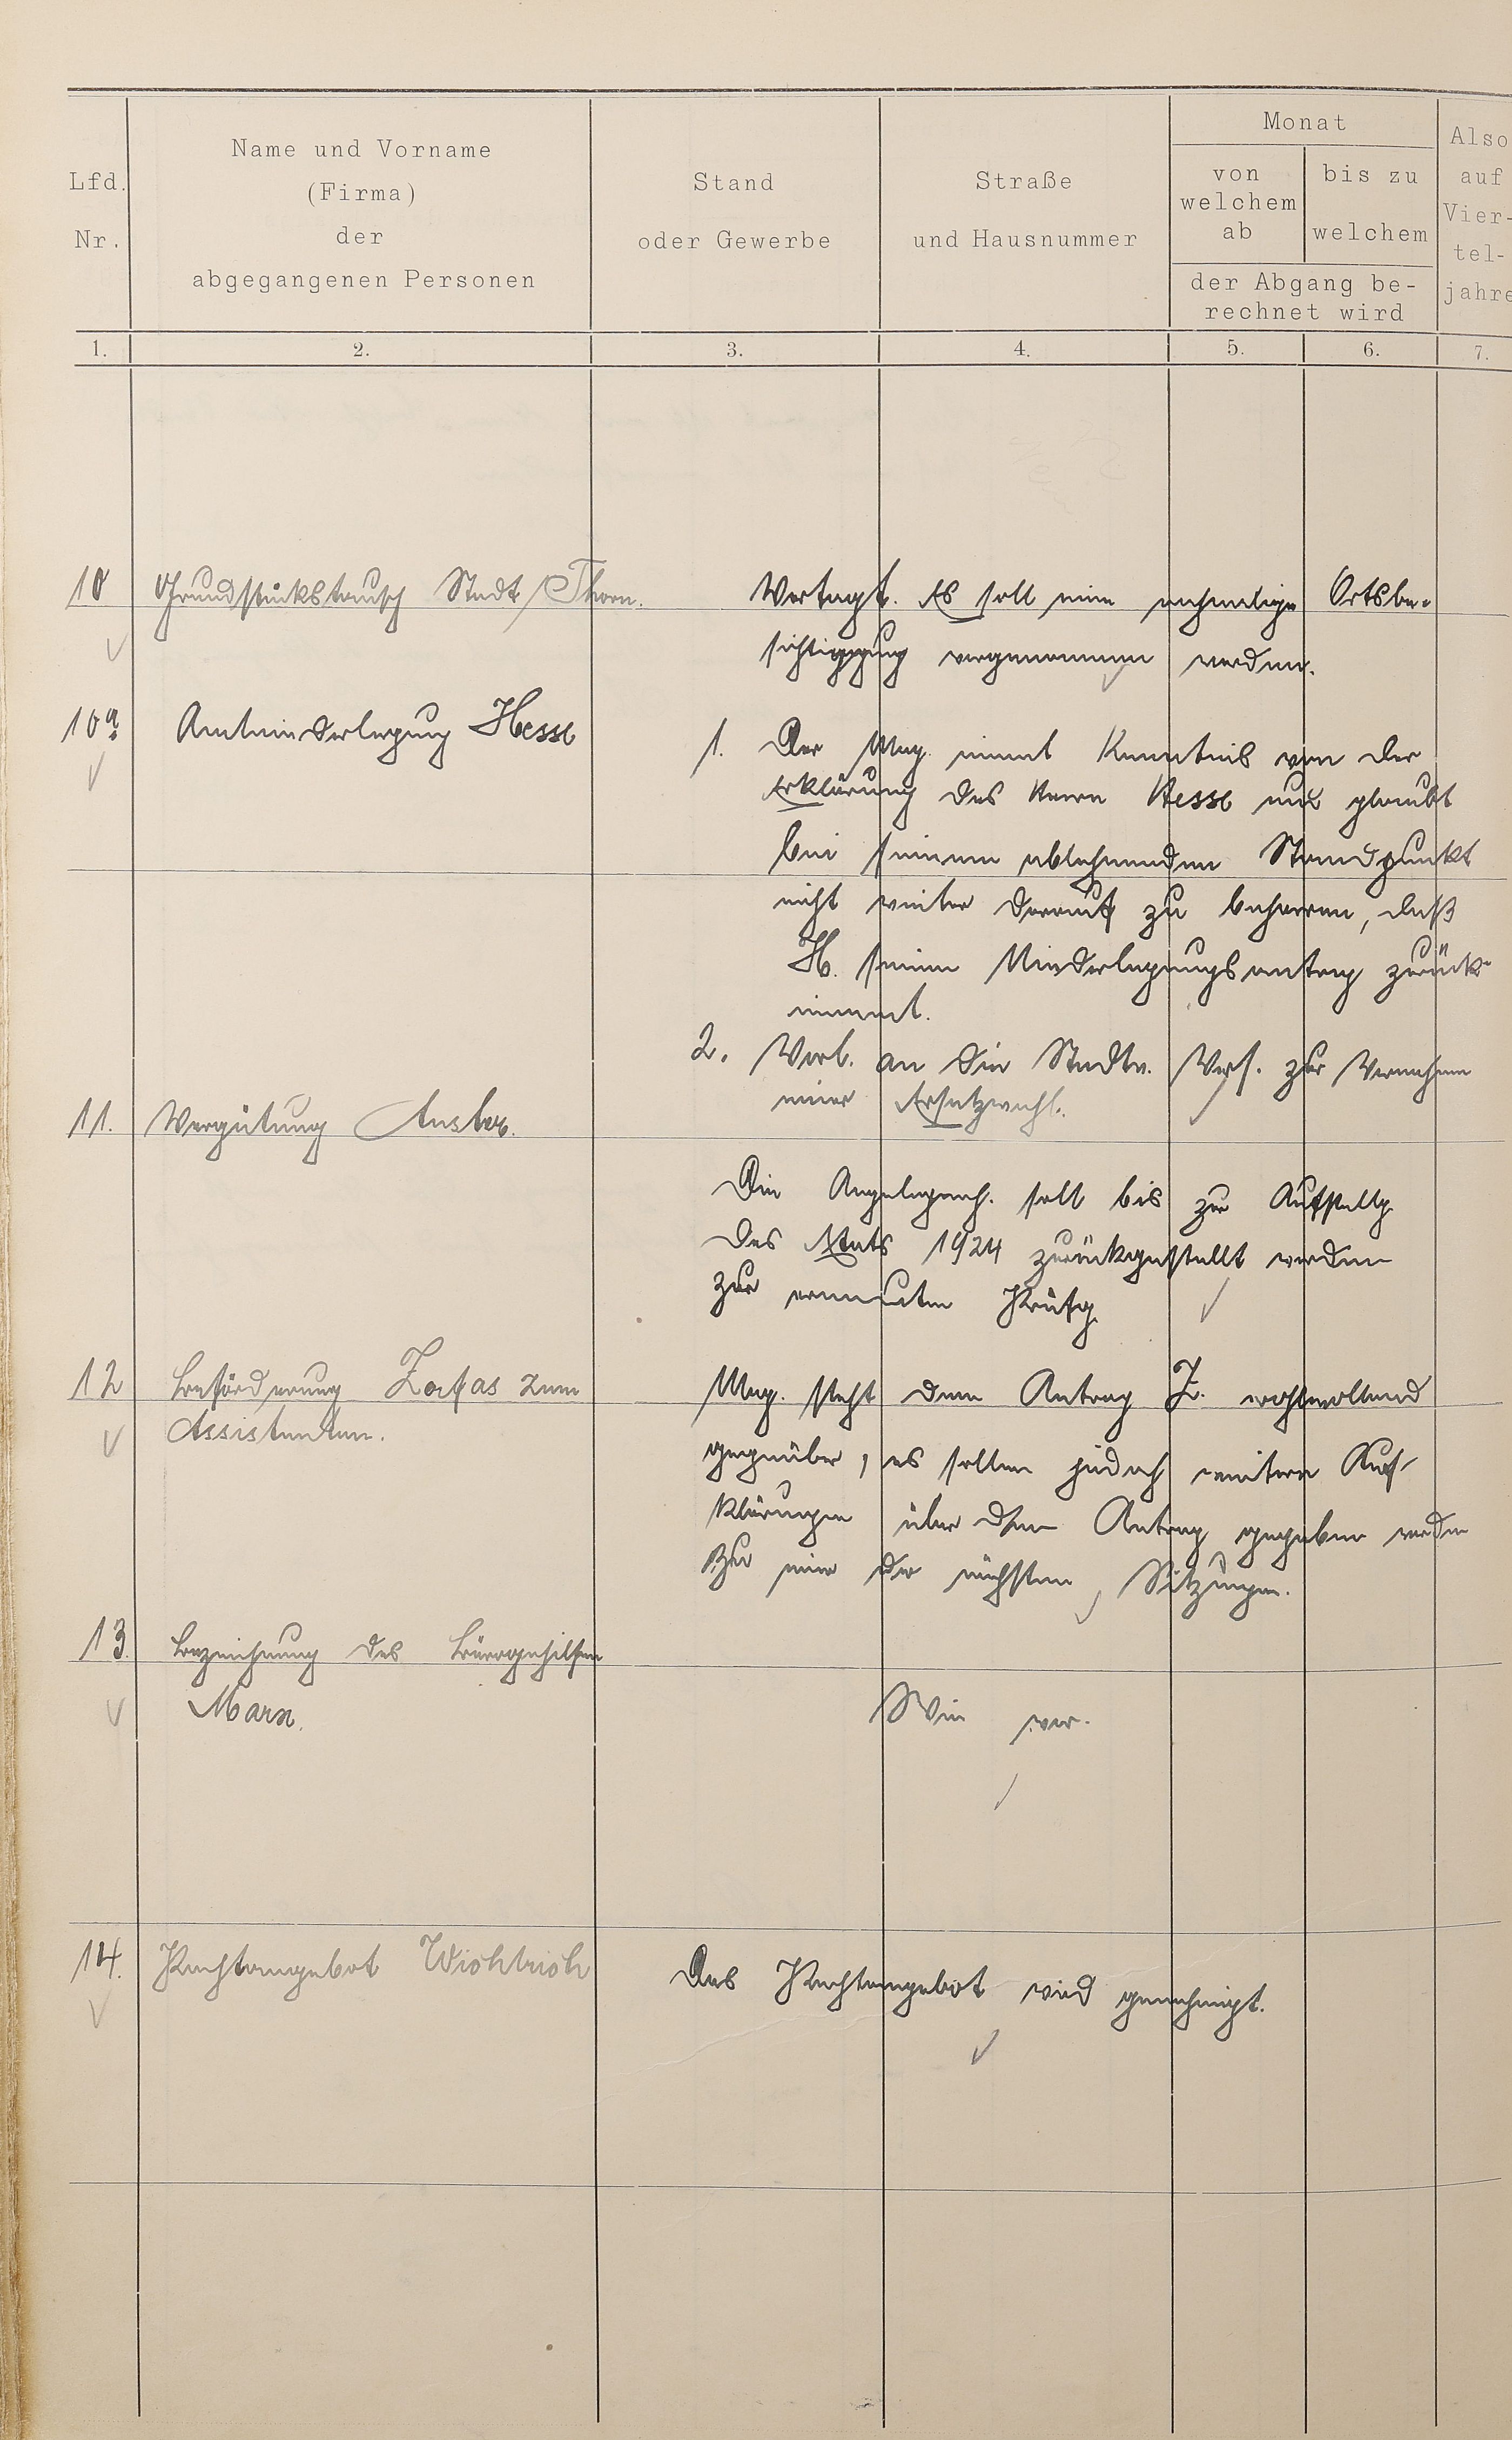 Lfd. Nr.
Name und Vorname
(Firma)
der
abgegangenen Personen
Stand
oder Gewerbe
Straße
und Hausnummer
Monat
von welchem ab
bis zu welchem
der Abgang be-
rechnet wird
Also
auf
Vier-
tel-
jahre
1. 2. 3. 4. 5. 6. 7.
10 Grundstückstausch Stadt/Thorn. Vertagt. Es soll eine nochmalige Ortsbe-
sichtigung vorgenommen werden.
10a Amtsniederlegung Hesse
1. Der Mag. nimmt Kenntnis von der
Erklärung des Herrn Hesse und glaubt
bei seinem ablehnenden Standpunkt
nicht weiter darauf zu beharren, daß
H. seinen Niederlegungsantrag zurück-
nimmt.
2. Vorl. an die Stadtv. Vers. zur Vornahme
einer Ersatzwahl.
11. Vergütung Auster.
Die Angelegenh. soll bis zur Aufstellg
des Etats 1924 zurückgestellt werden
zur erneuten Prüfg.
12 Beförderung Zafas zum Mag. steht dem Antrag Z. wohlwollend
Assistenten.
gegenüber, es sollen jedoch weitere Auf-
klärungen über den Antrag gegeben werden
zu einer der nächsten Sitzungen.
13. Bezeichnung des Bürogehilfen
Marx. Wie vor.
14. Pachtangebot Wichtrich Das Pachtangebot wird genehmigt.